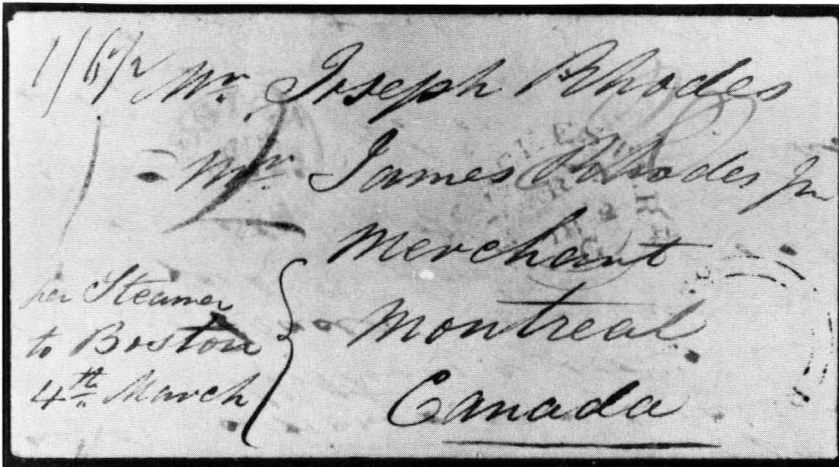 1/6½ Mr. Joseph Rhodes
Mr. James Rhodes Jn
Merchant
Montreal
Canada
per Steamer
to Boston
4th. March